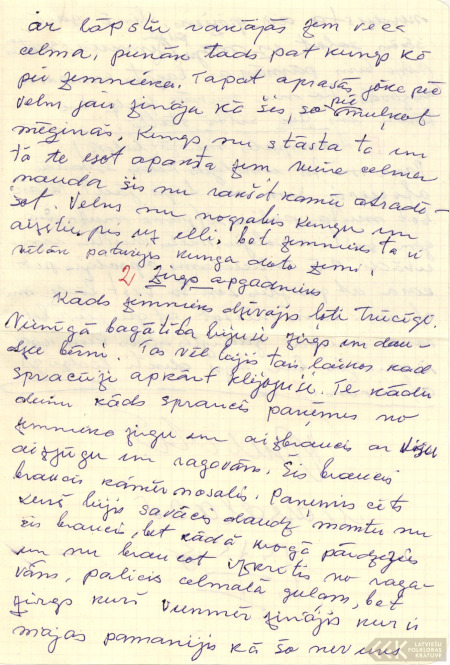 ar lāpstu rakājās zem veca
celma, pienāk tads pat kungs kō
pie zemnieka. Tapat aprasās, joke pie
velns jau zināja kā šis, so pie muļķot
mēģinās. Kungs nu stāsta tā un
tā te esot aparkta zem celma
nauda šis nu rakšot kamēr atradī-
šot. Velns nu nograbis kungu un
aiznesis uz elli, bet zemnieks tā i
paturejs kunga doto zemi.
2 Zirgs apgadnieks.
Kāds zemnieks dzīvājis ļoti trūcīgi.
Vienīgā bagātība bijusi zirgs un dau-
dze bērni. Tas vēl bijis tais laikos kad
sprancūži apkārt klijojuši. Te kādu
dienu kāds sprancis paņēmis no
zemnieka zirgu un aizbraucis ar visu
aizjūgu un ragavām. Šis braucis
braucis kamēr nosalis. Paņēmis cēts
bijis savācis daudz mantu nu
šis braucis, bet kādā krogā pārdzēries
un nu braucot izkritis no raga-
vām, palicis celmalā guļam, bet
zirgs kurš vienmēr zinājis kur ir
mājas pamanijis kā šo neviens
LATVIEŠU
FOLKLORAS
KRĀTUVE